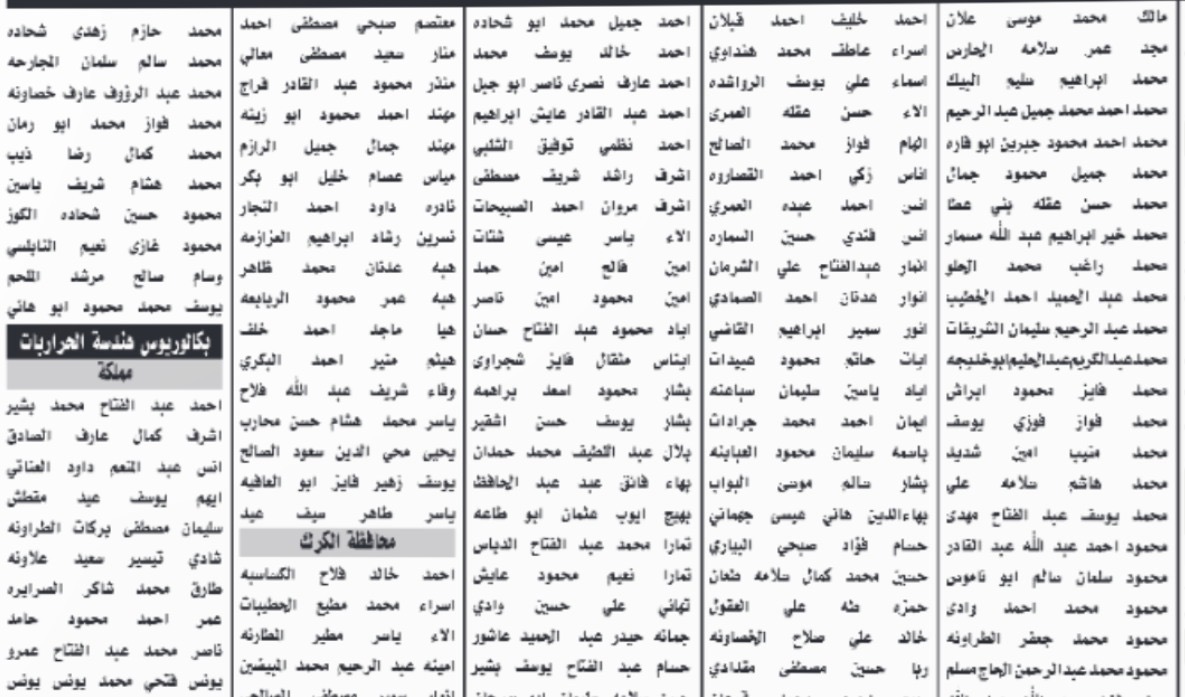 مالك محمد موسى علان
مجد عمر سلامه الحارس
محمد ابراهيم سليم البيك
محمد احمد محمد جميل عبد الرحيم
محمد احمد محمود جبرين ابو قاره
محمد جميل محمود جمال
محمد حسن عقله بني عطا
محمد خير ابراهيم عبد الله مسمار
محمد راغب محمد الحلو
محمد عبد الحميد احمد الخطيب
محمد عبد الرحيم سليمان الشريقات
محمد عبد الكريم عبد الحليم ابو خديجه
محمد فايز محمود ابراش
محمد فواز فوزي يوسف
محمد منيب امين شديد
محمد هاشم سلامه علي
محمد يوسف عبد الفتاح مهدى
محمود احمد عبد الله عبد القادر
محمود سلمان سالم ابو ناموس
محمود محمد احمد وادى
محمود محمد جعفر الطراونه
محمود محمد عبد الرحمن الحاج مسلم
احمد خليف احمد قبلان
اسراء عاطف محمد هنداوي
اسماء علي يوسف الرواشده
الاء حسن عقله العمرى
الهام فواز محمد الصالح
اناس زكي احمد القصاروه
انس احمد عبده العمري
انس فندي حسين السماره
انمار عبدالفتاح علي الشرمان
انوار عدنان احمد الصمادي
انور سمير ابراهيم القاضي
ايات حاتم محمود عبيدات
اياد ياسين سليمان سباعنه
ايمان احمد محمد جرادات
باسمه سليمان محمود العبابنه
بشار سالم موسى البواب
بهاءالدين هاني عيسى جهماني
حسام فؤاد صبحي البياري
حسين محمد كمال سلامه طعان
حمزه طه علي العقول
خالد علي صلاح الخصاونه
ربا حسين مصطفى مقدادي
احمد جميل محمد ابو شحاده
احمد خالد يوسف محمد
احمد عارف نصرى ناصر ابو جبل
احمد عبد القادر عايش ابراهيم
احمد نظمي توفيق الشلبي
اشرف راشد شريف مصطفى
اشرف مروان احمد الصبيحات
الاء ياسر عيسى شتات
امين فالح امين حمد
امين محمود امين ناصر
اياد محمود عبد الفتاح حسان
ايناس مثقال فايز شجراوى
بشار محمود اسعد براهمه
بشار يوسف حسن اشقير
بلال عبد اللطيف محمد حمدان
بهاء فائق عبد عبد الحافظ
بهيج ايوب عثمان ابو طاعه
تمارا محمد عبد الفتاح الدباس
تمارا نعيم محمود عايش
تهاني علي حسين وادي
جمانه حيدر عبد الحميد عاشور
حسام عبد الفتاح يوسف بشير
معتصم صبحي مصطفى احمد
منار سعيد مصطفى معالي
منذر محمود عبد القادر فراج
مهند احمد محمود ابو زينه
مهند جمال جميل الرازم
مياس عصام خليل ابو بكر
نادره داود احمد النجار
نسرين رشاد ابراهيم العزازمه
هبه عدنان محمد ظاهر
هبه عمر محمود الربابعه
هيا ماجد احمد خلف
هيثم منير احمد البكري
وفاء شريف عبد الله فلاح
ياسر محمد هشام حسن محارب
يحيى محي الدين سعود الصالح
يوسف زهير فايز ابو العافيه
ياسر طاهر سيف عيد
محافظة الكرك
احمد خالد فلاح الكساسبه
اسراء محمد مطيع الحطيبات
الاء ياسر مطير المطارنه
امينه عبد الرحيم محمد المبيضين
محمد حازم زهدى شحاده
محمد سالم سلمان المجارحه
محمد عبد الرؤوف عارف خصاونه
محمد فواز محمد ابو رمان
محمد كمال رضا ذيب
محمد هشام شريف ياسين
محمود حسين شحاده الكوز
محمود غازى نعيم النابلسي
وسام صالح مرشد الملحم
يوسف محمد محمود ابو هاني
بكالوريوس هندسة الحراريات
مملكة
احمد عبد الفتاح محمد بشير
اشرف كمال عارف الصادق
انس عبد المنعم داود العناتي
ايهم يوسف عيد مقطش
سليمان مصطفى بركات الطراونه
شادي تيسير سعيد علاونه
طارق محمد شاكر الصرايره
عمر احمد محمود حامد
ناصر محمد عبد الفتاح عمرو
يونس فتحي محمد يونس يونس